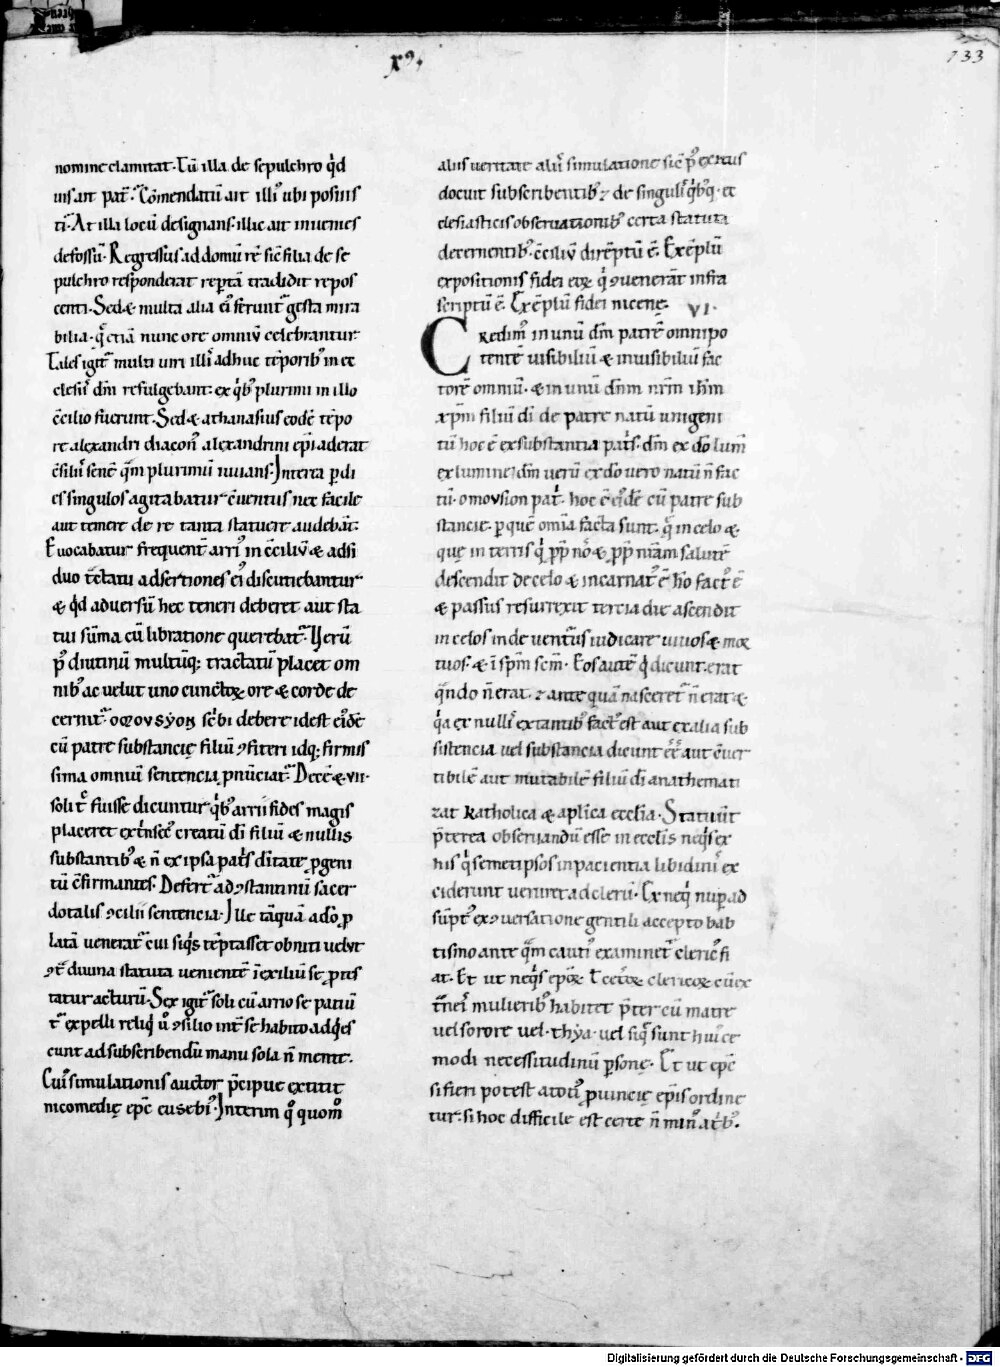 xv.
133
nomine clamitat. Tũ illa de sepulchro q̇d
uis ait pat̃. Cõmendatũ ait illi᷒ ubi posuis
ti. At illa locũ designans. illic ait inuenies
defossũ. Regressus ad domũ rẽ sic̃ filia de se
pulchro responderat rep̱tã tradidit repos
centi. Sed & multa alia ei᷒ ferunt᷑ gesta mira
bilia. que̾ etiã nunc ore omniũ celebrantur
Tales igit᷑ multi uiri illi᷒ adhuc tẽporib᷒ in ec
clesiis dñi refulgebant. ex q̇b᷒ plurimi in illo
c̃cilio fuerunt. Sed & athanasius eodẽ tẽpo
re alexandri diacon᷒ alexandrini ep̃i aderat
c̃silii᷒ senẽ q̃m plurimũ iuuans. Interea p̱ di
es singulos agitabatur c̃uentus nec facile
aut temere de re tanta statuere audebãt.
Euocabatur frequent̃ arri᷒ in c̃ciliũ & adsi
duo t̃ctatu adsertiones ei᷒ discutiebantur
& q̇d aduersũ hec teneri deberet aut sta
tui sũma cũ libratione querebat᷑. Uerũ
p᷒ diutinũ multũq; tractatũ placet om
nib᷒ ac uelut uno cunctoꝝ ore & corde de
cernit᷑. ομουσyον sc̃bi debere idest ei᷒dẽ
cũ patre substancię filiũ ꝯfiteri idq; firmis
sima omniũ sentencia pnũciat᷑. Decẽ & vii.
soli t̃ fuisse dicuntur q̇b᷒ arrii fides magis
placeret extᷓnsec᷒ creatũ di᷒ filiũ & nullis
substantib᷒ & ñ ex ipsa patˢ diᷓtate p̱geni
tũ c̃firmantes. Defert᷑ ad ꝯstantinũ sacer
dotalis ꝯcilii sentencia. Ille tãquã a dõ p̱
latã uenerat᷑. cui siq̇s tẽptasset obniti uelut
ꝯt̃ diuina statuta ueniente ĩ exiliũ se p̱tes
tatur acturũ. Sex igit᷑ soli cũ arrio se patiũ
t᷑ expelli reliq̇ ũ ꝯsilio int̃ se habito adq̇es
cunt ad subscribendũ manu sola ñ mente.
Cui᷒ simulationis auctor p̃cipue extitit
nicomedię ep̃c eusebi᷒. Interim q᷒ quom᷒
aliis ueritate alii᷒ simulatione sic̃ p᷒ exitus
docuit subscribentib᷒ ⁊ de singulis q̇b᷒q. et
clesiasticis obseruationib᷒ certa statuta
decernentib᷒. c̃ciliũ dirẽptũ ẽ. Exẽplũ
expositionis fidei eoꝝ q̇ ꝯuenerãt infra
scriptũ ẽ. Exẽplũ fidei nicenę. VI.
Credim᷒ in unũ dm̃ patrẽ omnipo
tentẽ uisibiliũ & inuisibiliũ fac
torẽ omniũ. & in unũ dñm nr̃m ihm̃
xp̃m filiũ di᷒ de patre natũ unigeni
tũ hoc ẽ ex substantia patˢ. dm̃ ex dõ lum̃
ex lumine dm̃ uerũ ex dõ uero natũ ñ fac
tũ. omousion patˢ. hoc ẽ ei᷒dẽ cũ patre sub
stancię. p̱ quẽ omĩa facta sunt. q̃ in celo &
quę in terris q̇ pp̃ nos & pp̃ nr̃am salutẽ
descendit de celo & incarnat᷒ ẽ hõ fact᷒ ẽ
& passus resurrexit tercia die ascendit
in celos inde uentur᷒ iudicare uiuos & mor
tuos. & ĩ spm̃ scm̃. Eos autẽ q̇ dicunt. erat
q̃ndo ñ erat. ⁊ ante quã nasceret᷑ ñ erat &
q̇a ex nullis extantib᷒ fact᷒ est aut ex alia sub
sistencia uel substancia dicunt eẽ aut c̃uer
tibilẽ aut mutabilẽ filiũ di᷒ anathemati
zat katholica & aplica eccl̃ia. Statuũt
p̃terea obseruandũ esse in ecclis neq̇s ex
his q̇ semetipsos inpacientia libidinis ex
ciderunt ueniret ad clerũ. Et neq̇ nup̱ ad
sũpt᷒ ex ꝯuersatione gentili accepto bab
tismo ante q̃m cauti᷒ examinet᷑ cleric᷒ fi
at. Et ut neq̇s ep̃oꝝ. l̃ cet̃oꝝ clericoꝝ cũ ex
t̃neis mulierib᷒ habitet p̃ter cũ matre
uel sorore uel. thya. uel siq̃ sunt hui᷒ce
modi necessitudinũ p̱sonę. Et ut ep̃c
si fieri potest a toti᷒ p̱uincię ep̃is ordine
tur. si hoc difficile est certe ñ min᷒ a tˢb᷒.
Digitalisierung gefördert durch die Deutsche Forschungsgemeinschaft - DFG